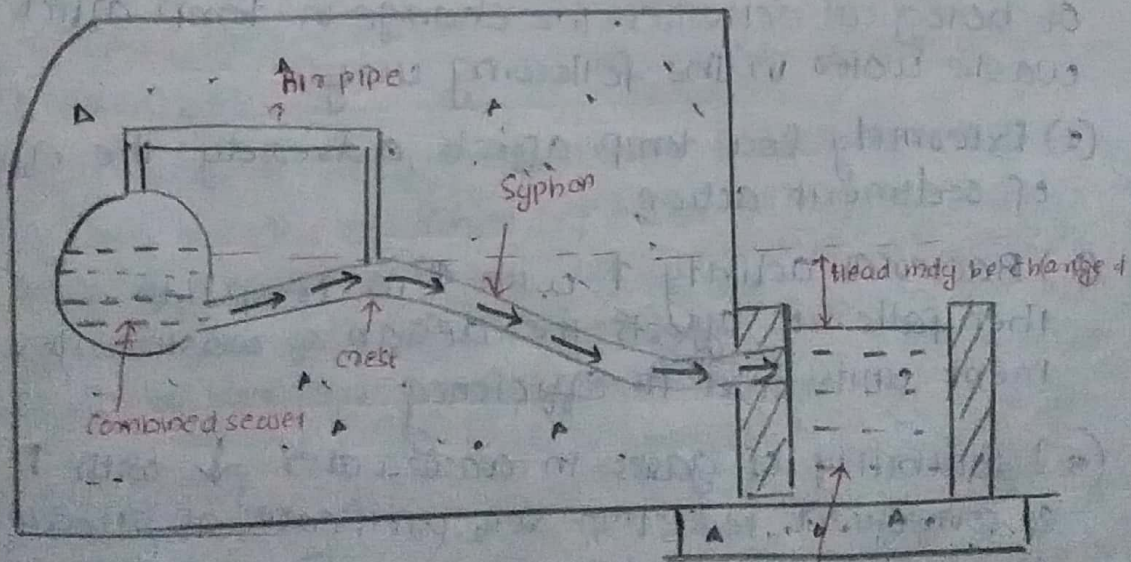 Air pipe
Syphon
Head may be changed
Crest
Combined sewer